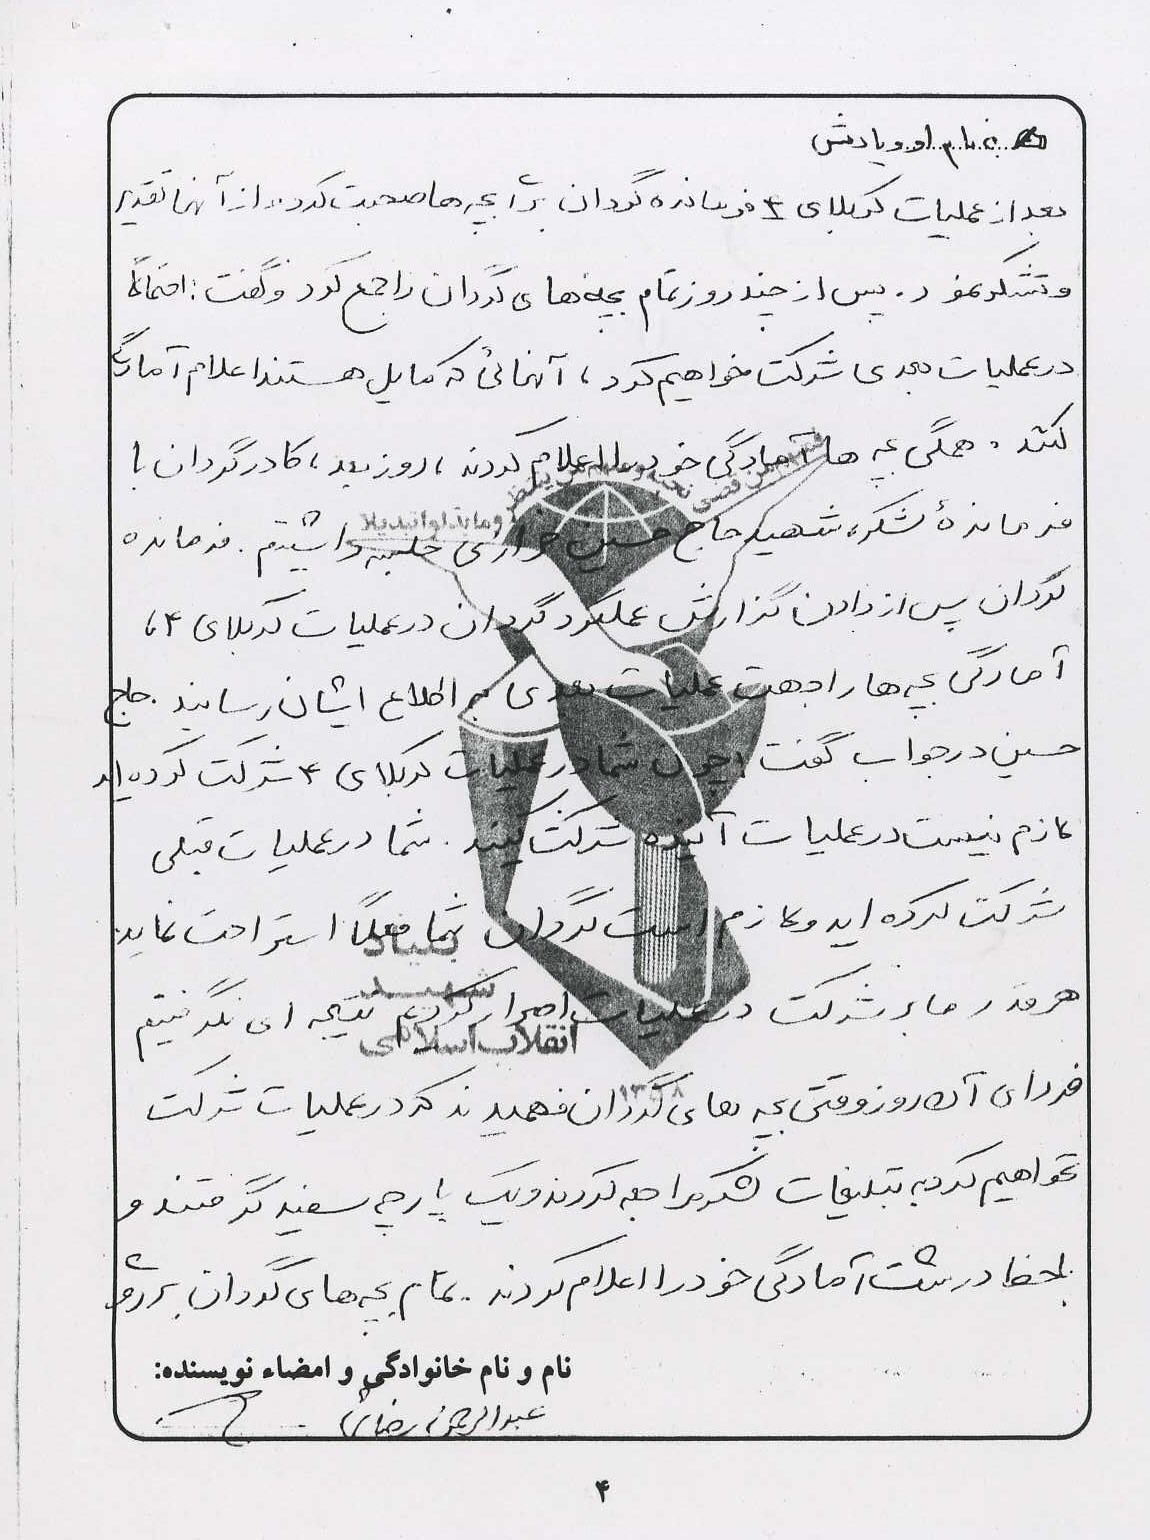 بنام او و یادش
بعد از عملیات کربلای ۴ فرمانده گردان برای بچه ها صحبت کرد و از آنها تقدیر
و تشکر نمود. پس از چند روز تمام بچه های گردان را جمع کرد و گفت: احتمالاً
در عملیات بعدی شرکت خواهیم کرد، آنهائی که مایل هستند اعلام آمادگی
کنند. همگی بچه ها آمادگی خود را اعلام کردند، روز بعد، کادر گردان با
فرماندهٔ لشکر، شهید حاج حسین خرازی جلسه داشتیم. فرمانده
گردان پس از دادن گزارش عملکرد گردان در عملیات کربلای ۴،
آمادگی بچه ها را جهت عملیات بعدی به اطلاع ایشان رسانید. حاج
حسین در جواب گفت: چون شما در عملیات کربلای ۴ شرکت کرده اید
لازم نیست در عملیات آینده شرکت کنید. شما در عملیات قبلی
شرکت کرده اید و لازم است گردان شما فعلاً استراحت نماید.
هر قدر ما بر شرکت در عملیات اصرار کردیم نتیجه ای نگرفتیم
فردای آن روز وقتی بچه های گردان فهمیدند که در عملیات شرکت
نخواهیم کرد به تبلیغات لشکر مراجعه کردند و یک پارچه سفید گرفتند و
با خط درشت آمادگی خود را اعلام کردند. تمام بچه های گردان بر روی
فمنهم من قضی نحبه و منهم من ینتظر و ما بدلوا تبدیلا
بنیاد
شهید
انقلاب اسلامی
۱۳۵۸
نام و نام خانوادگی و امضاء نویسنده:
عبدالرحمن رضائی
۴